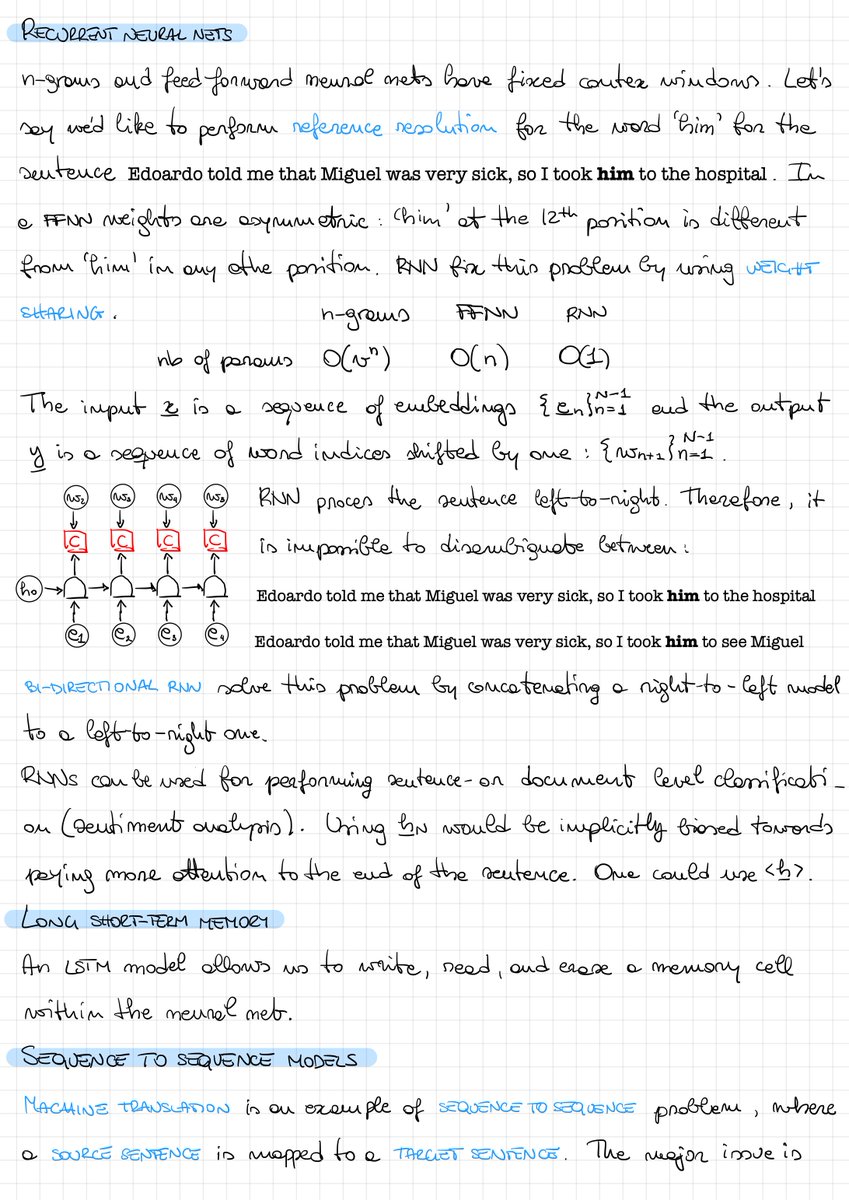 RECURRENT NEURAL NETS
n-grams and feed-forward neural nets have fixed contex windows. Let's
say we'd like to perform reference resolution for the word 'him' for the
sentence Edoardo told me that Miguel was very sick, so I took him to the hospital. In
a FFNN weights are asymmetric: 'him' at the 12th position is different
from 'him' in any othe position. RNN fix this problem by using WEIGHT
SHARING.
n-grams FFNN RNN
nb of params O(v^n) O(n) O(1)
The input x is a sequence of embeddings {e_n}_{n=1}^{N-1} and the output
y is a sequence of word indices shifted by one: {w_{n+1}}_{n=1}^{N-1}.
w2 w3 w4 w5
RNN proces the sentence left-to-right. Therefore, it
C C C C
is impossible to disambiguate between:
h0
Edoardo told me that Miguel was very sick, so I took him to the hospital
e1 e2 e3 e4
Edoardo told me that Miguel was very sick, so I took him to see Miguel
BI-DIRECTIONAL RNN solve this problem by concatenating a right-to-left model
to a left-to-right one.
RNNs can be used for performing sentence- or document level classificati-
on (sentiment analysis). Using h_N would be implicitly biased towards
paying more attention to the end of the sentence. One could use <h>.
LONG SHORT-TERM MEMORY
An LSTM model allows us to write, read, and erase a memory cell
within the neural net.
SEQUENCE TO SEQUENCE MODELS
MACHINE TRANSLATION is an example of SEQUENCE TO SEQUENCE problem, where
a SOURCE SENTENCE is mapped to a TARGET SENTENCE. The major issue is